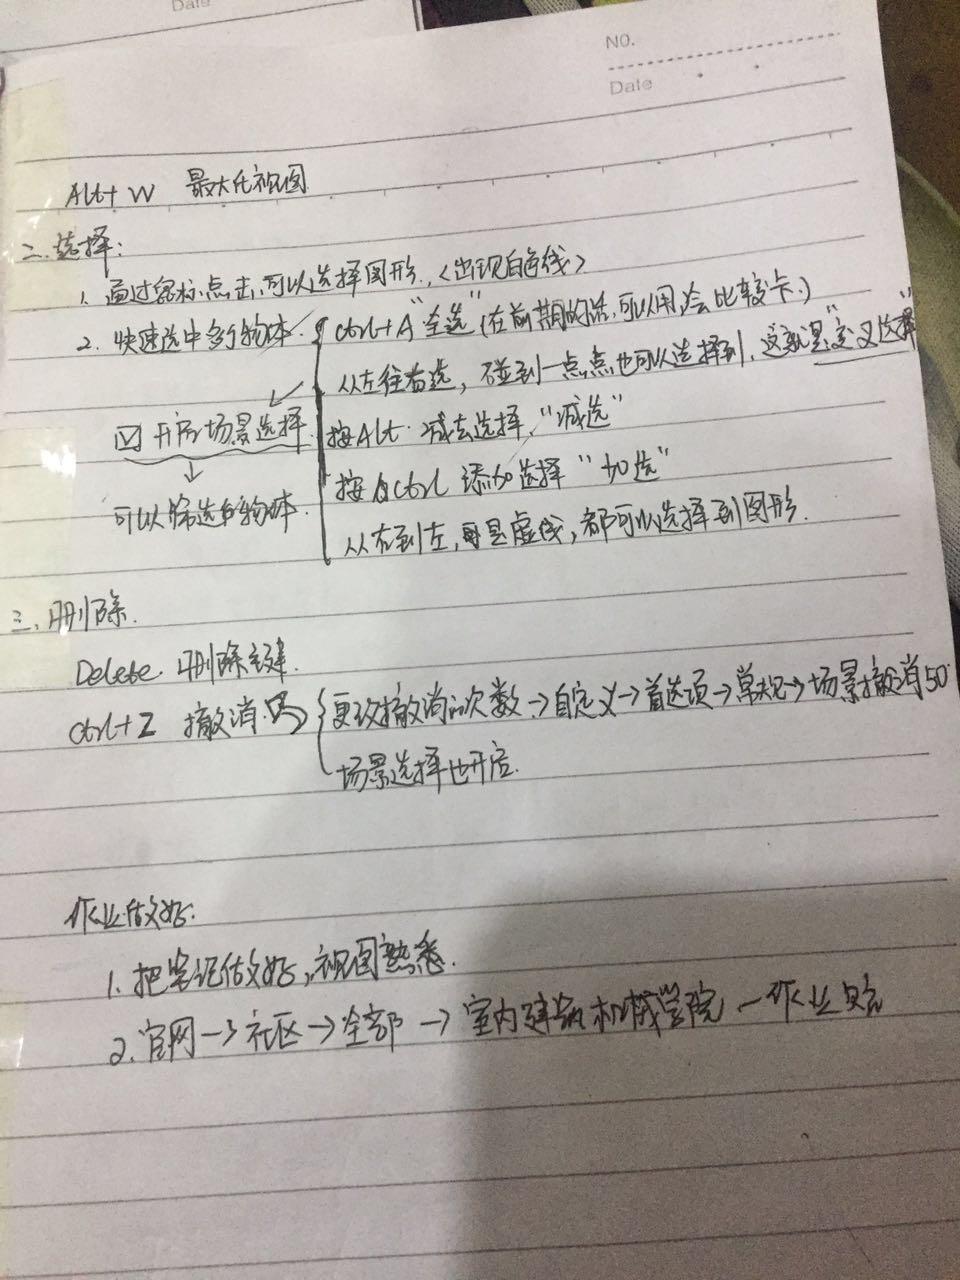 Date
NO.
Date
Alt+W 最大化视图
二.选择:
1. 通过鼠标点击,可以选择图形.<出现白色线>
2. 快速选中多个物体. Ctrl+A "全选"(在前期的话,可以用,会比较卡.)
从左往右选，碰到一点点也可以选择到,这就是"交叉选择"
☑ 开启场景选择. 按Alt 减去选择,"减选"
按Ctrl 添加选择 "加选"
可以筛选物体.
从右到左,是虚线,都可以选择到图形.
三.删除.
Delete. 删除键.
Ctrl+Z 撤消 更改撤消的次数→自定义→首选项→常规→场景撤消50.
场景选择也开启.
作业做好:
1. 把笔记做好,视图熟悉.
2. 官网→社区→全部→室内建筑机械学院—作业